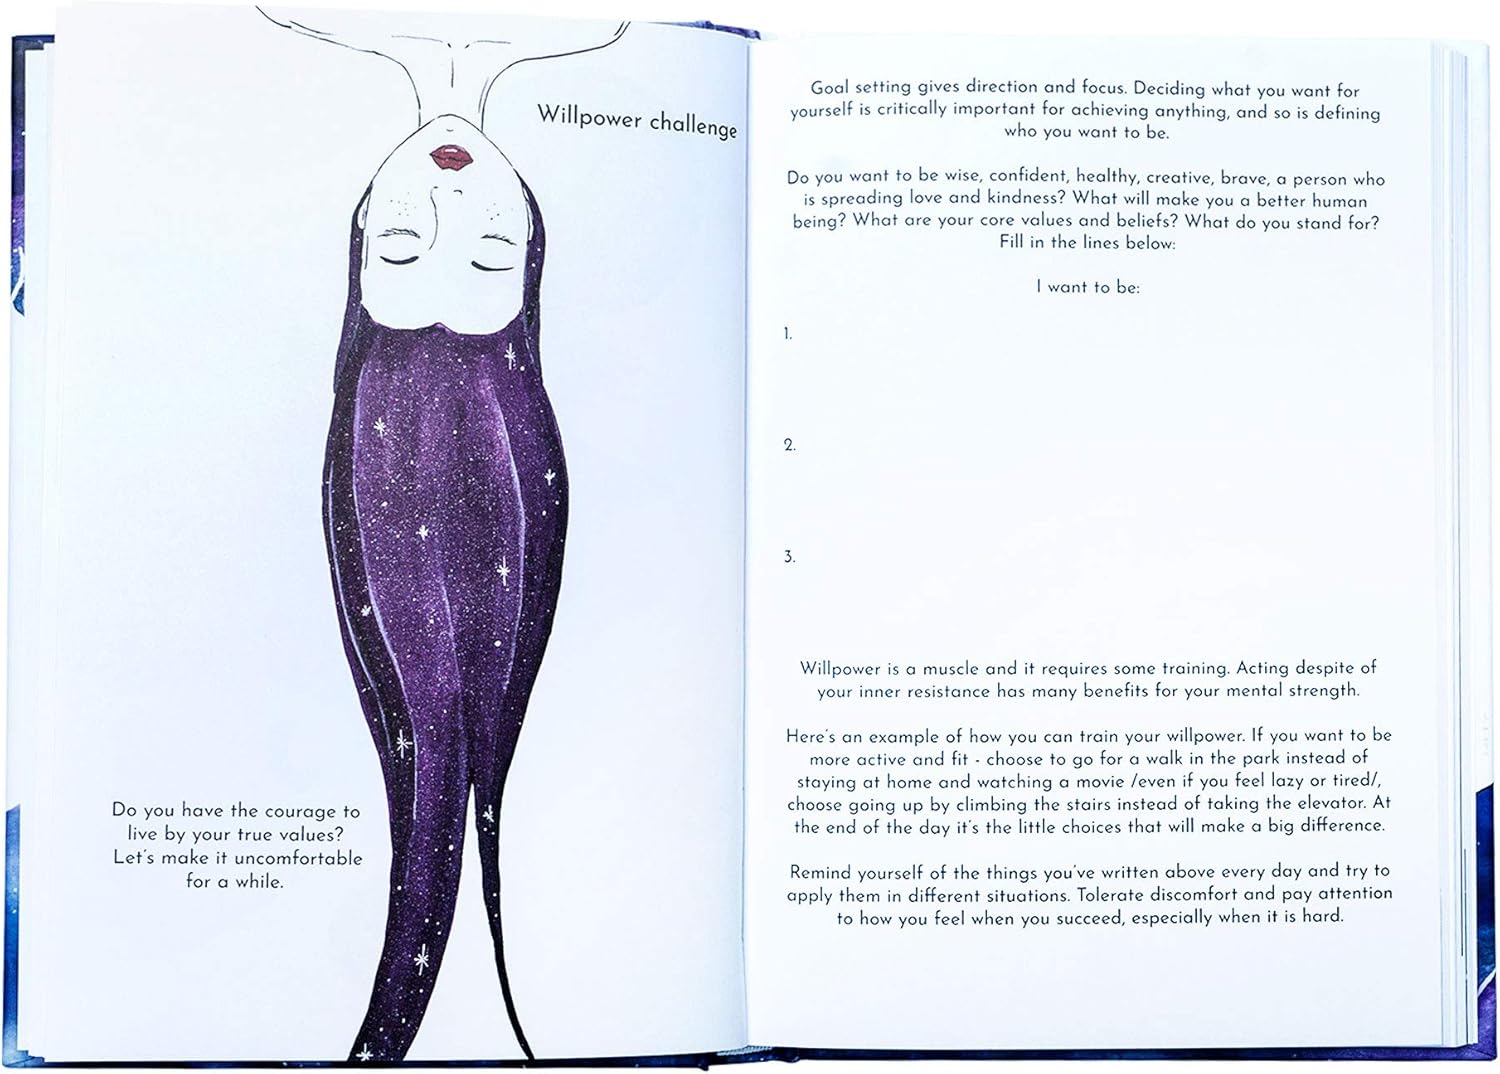 Willpower challenge
Do you have the courage to
live by your true values?
Let's make it uncomfortable
for a while.
Goal setting gives direction and focus. Deciding what you want for
yourself is critically important for achieving anything, and so is defining
who you want to be.
Do you want to be wise, confident, healthy, creative, brave, a person who
is spreading love and kindness? What will make you a better human
being? What are your core values and beliefs? What do you stand for?
Fill in the lines below:
I want to be:
1.
2.
3.
Willpower is a muscle and it requires some training. Acting despite of
your inner resistance has many benefits for your mental strength.
Here's an example of how you can train your willpower. If you want to be
more active and fit - choose to go for a walk in the park instead of
staying at home and watching a movie /even if you feel lazy or tired/,
choose going up by climbing the stairs instead of taking the elevator. At
the end of the day it's the little choices that will make a big difference.
Remind yourself of the things you've written above every day and try to
apply them in different situations. Tolerate discomfort and pay attention
to how you feel when you succeed, especially when it is hard.